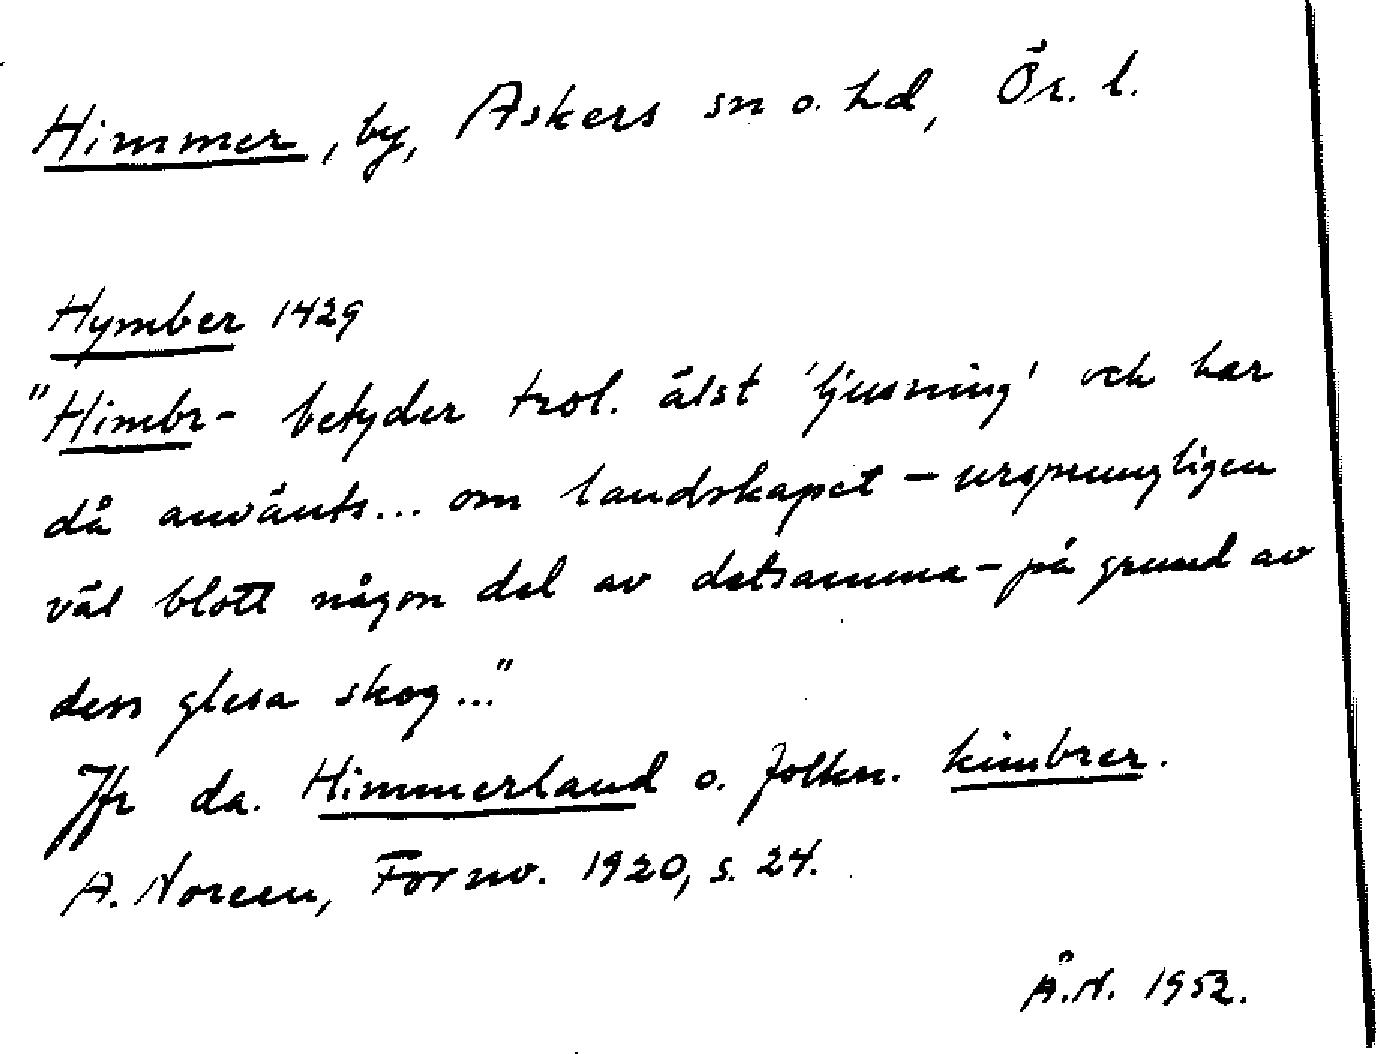 Himmer, by, Askers sn o. hd, Ör. l.
Hymber 1429
"Himbr- betyder trol. älst 'ljusning' och har
då använts... om landskapet – ursprungligen
väl blott någon del av detsamma – på grund av
dess glesa skog..."
Jfr da. Himmerland o. folkn. kimbrer.
A. Noreen, Fornv. 1920, s. 24.
Å.N. 1952.